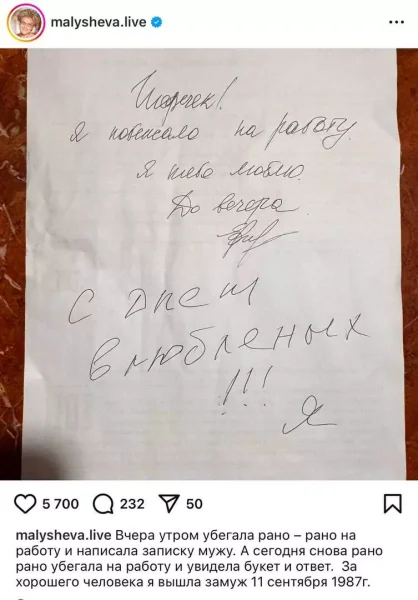 malysheva.live
Игорчек!
Я побежала на работу.
Я тебя люблю.
До вечера
С днем
влюбленых
!!!
Я
5 700 232 50
malysheva.live Вчера утром убегала рано – рано на
работу и написала записку мужу. А сегодня снова рано
рано убегала на работу и увидела букет и ответ. За
хорошего человека я вышла замуж 11 сентября 1987г.